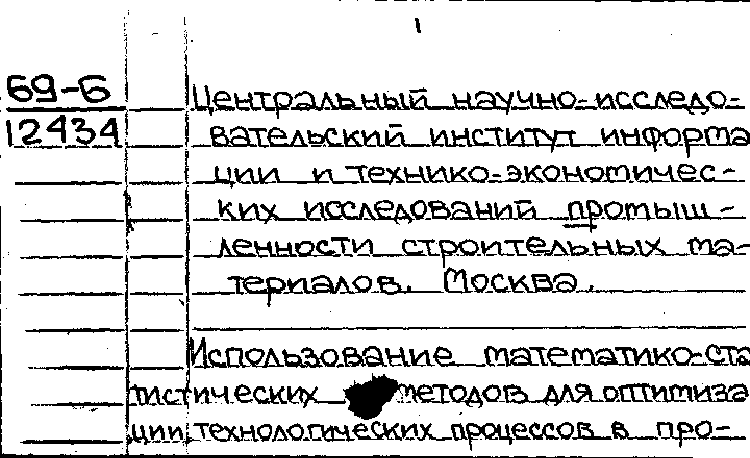 1
69-Б
12434
Центральный научно-исследо-
вательский институт информа
ции и технико-экономичес-
ких исследований промыш-
ленности строительных ма-
териалов. Москва.
Использование математико-ста
тистических методов для оптимиза
ции технологических процессов в про-